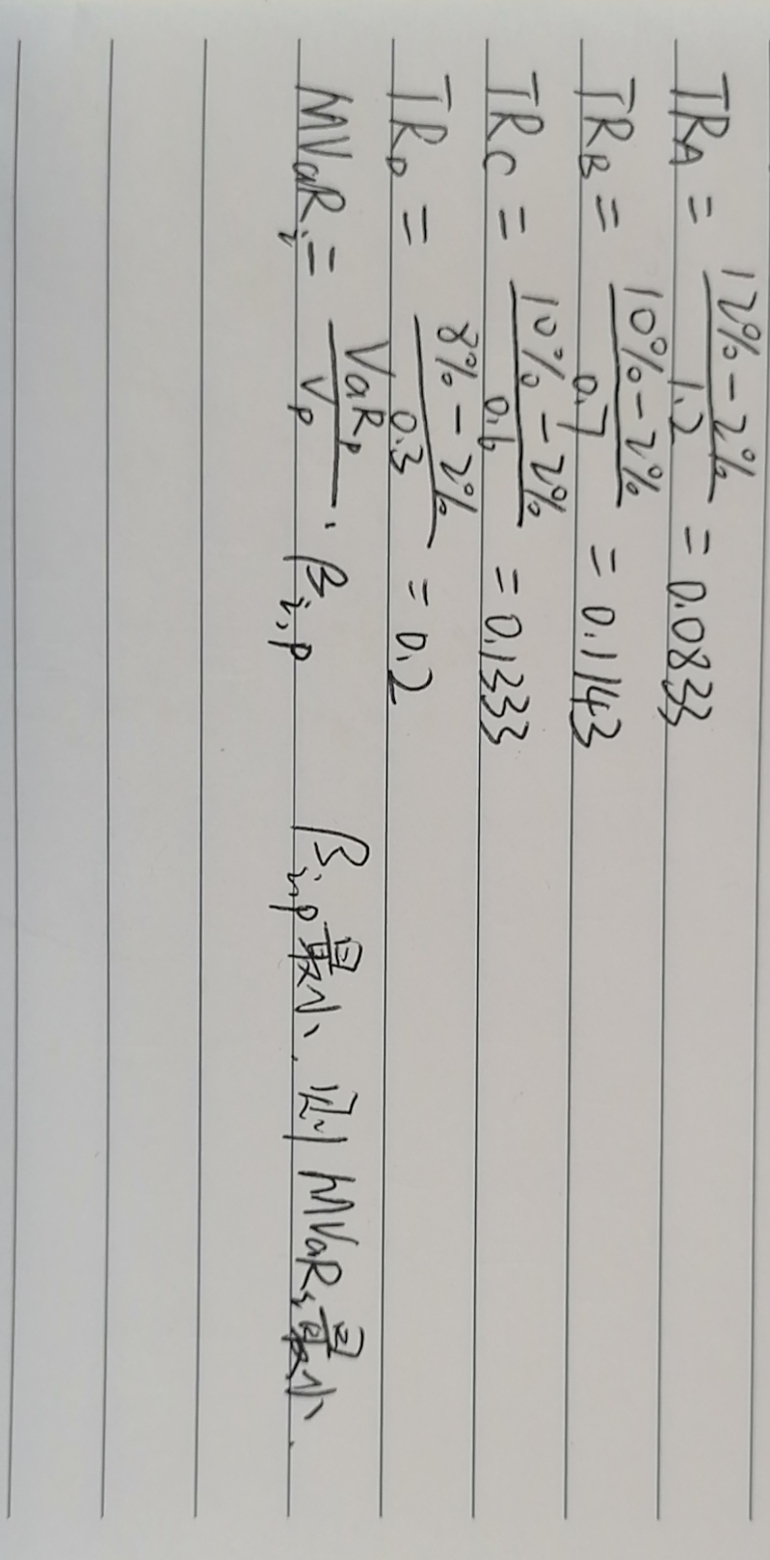 TR_A = (12% - 2%) / 1.2 = 0.0833
TR_B = (10% - 2%) / 0.7 = 0.1143
TR_C = (10% - 2%) / 0.6 = 0.1333
TR_D = (8% - 2%) / 0.3 = 0.2
MVaR_i = VaR_p / V_p · β_{i,p} β_{i,p}最小, 则MVaR_i最小.